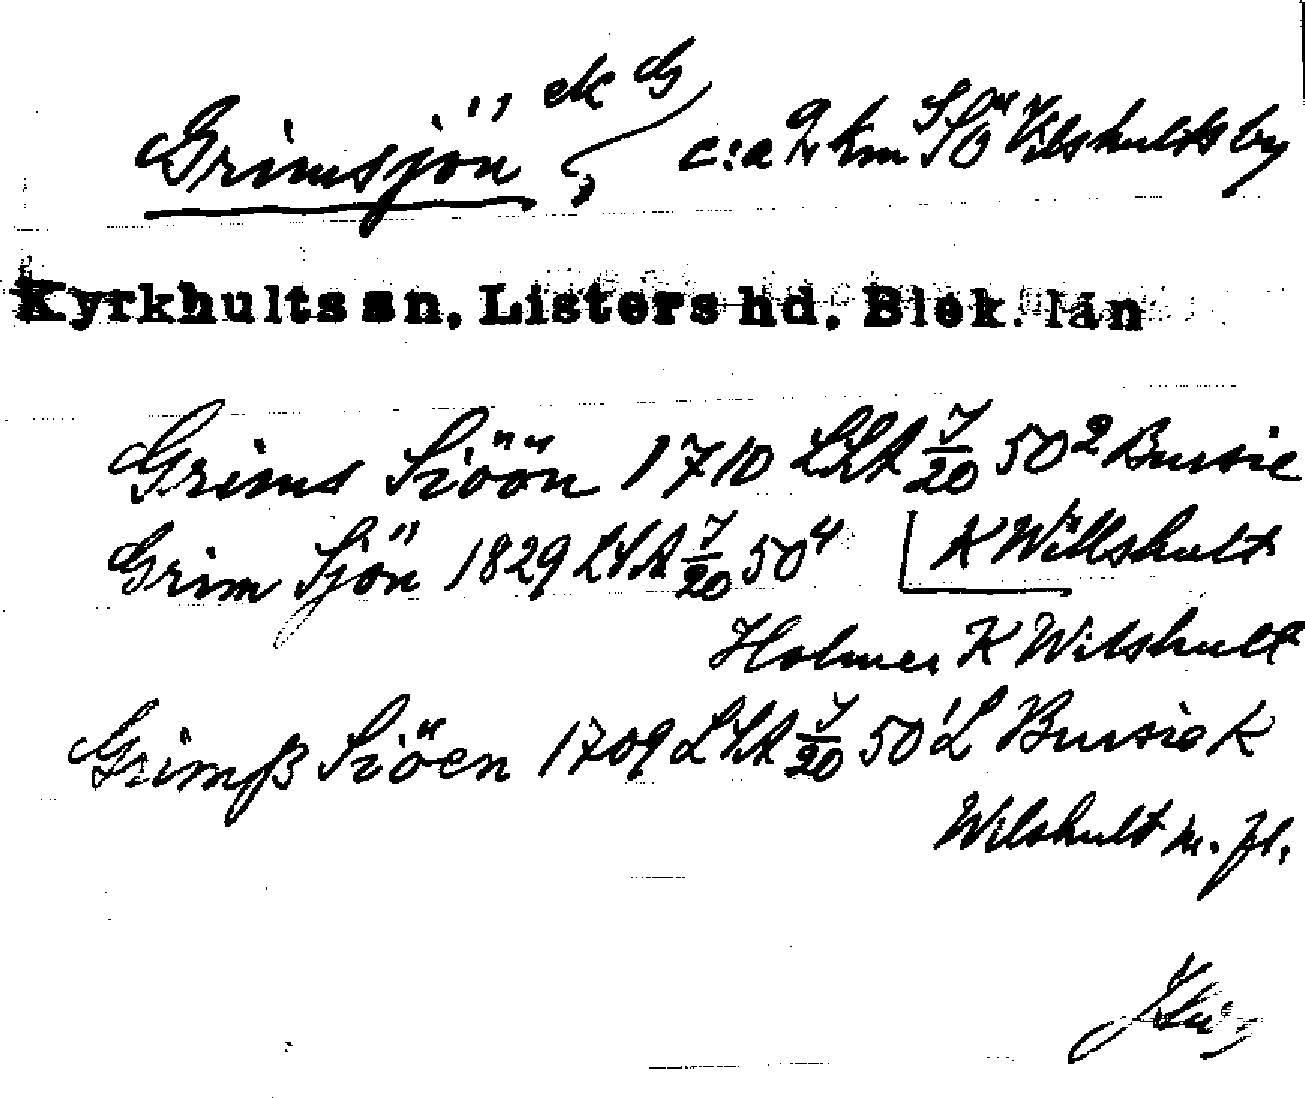 Grimsjön ek G c:a 2 km SSÖ Vilshults by
Kyrkhults sn, Listers hd. Blek. län
Grims Siöön 1710 LSA J/20 50² Bursie
Grim Sjön 1829 LSA J/20 50⁴ K Willshult
Holmer K Wilshult
Grimß Siöen 1709 LSA J/20 50¹ L Bursie K
Wilshult m. fl.